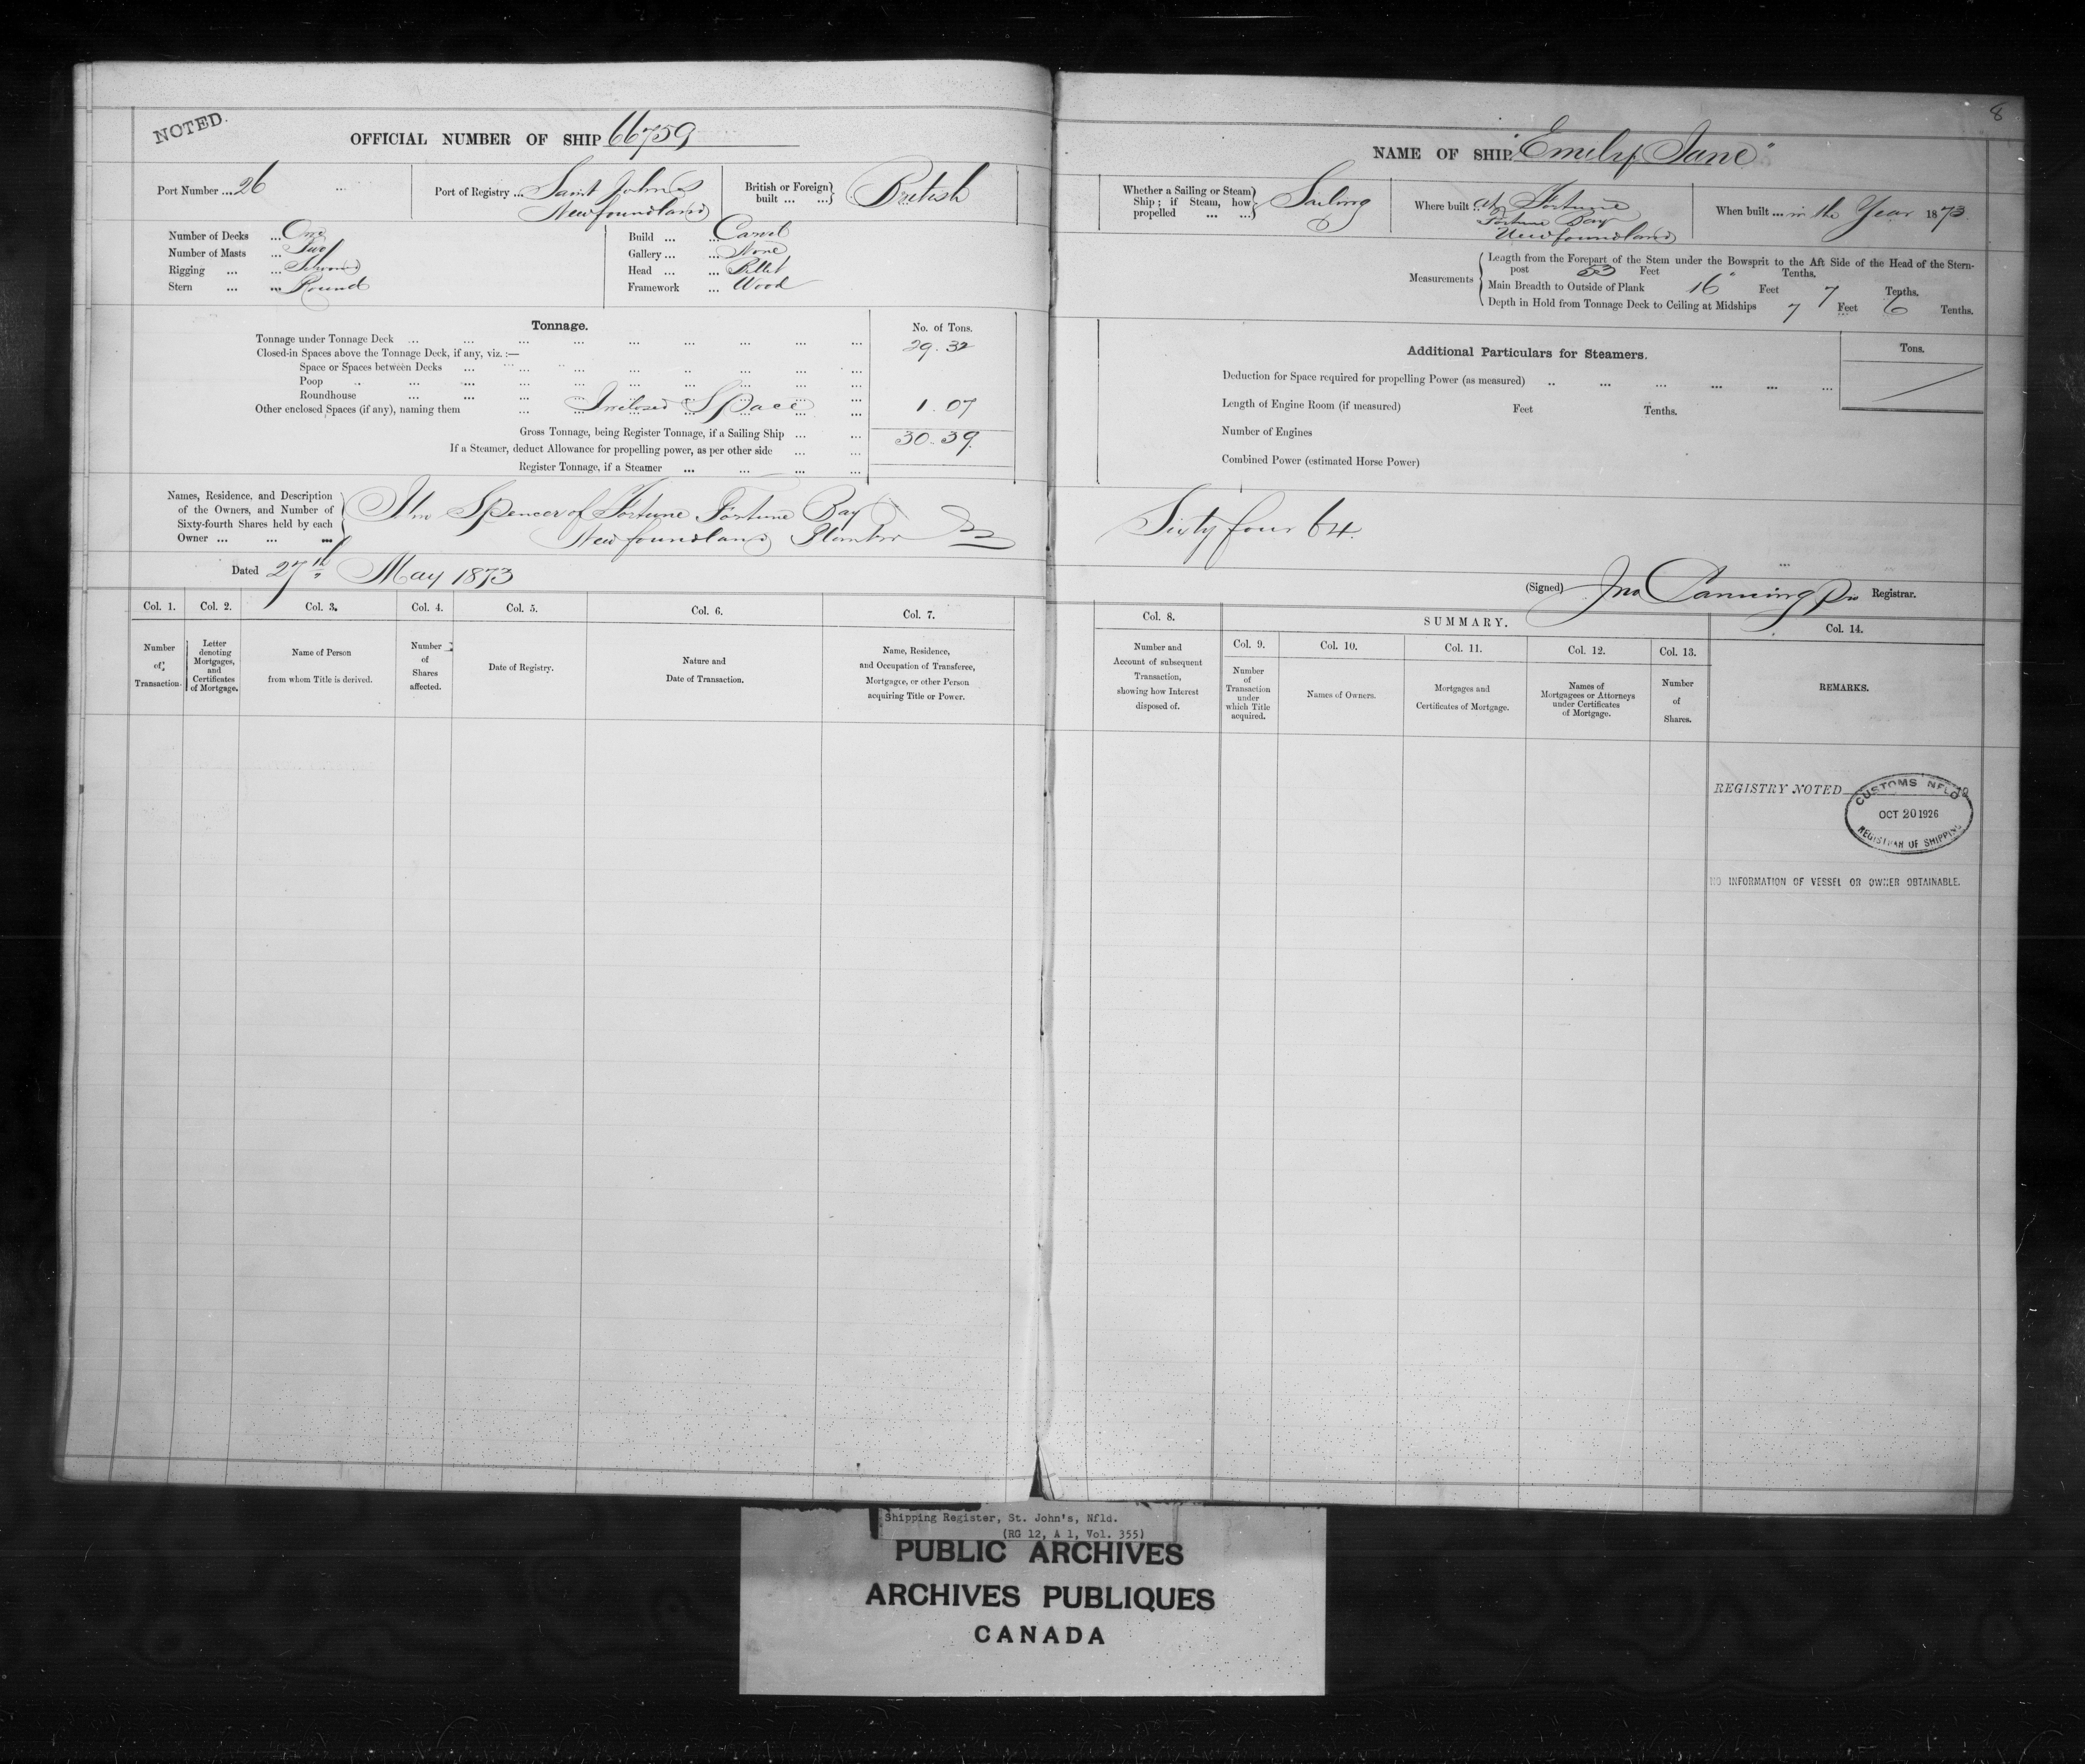 8
NOTED.
OFFICIAL NUMBER OF SHIP 66759
Port Number ... 26
Port of Registry ... Saint Johns
Newfoundland
British or Foreign built ... ... British
Number of Decks ... One
Number of Masts ... Two
Rigging ... ... Schooner
Stern ... ... Round
Build ... ... Carvel
Gallery ... ... None
Head ... ... Billet
Framework ... Wood
Tonnage.
No. of Tons.
Tonnage under Tonnage Deck ... 29.32
Closed-in Spaces above the Tonnage Deck, if any, viz.:—
Space or Spaces between Decks
Poop
Roundhouse
Other enclosed Spaces (if any), naming them Inclosed Space 1.07
Gross Tonnage, being Register Tonnage, if a Sailing Ship ... 30.39
If a Steamer, deduct Allowance for propelling power, as per other side
Register Tonnage, if a Steamer
Names, Residence, and Description
of the Owners, and Number of
Sixty-fourth Shares held by each
Owner ... ... ...
Spencer of Fortune Fortune Bay
Newfoundland
Dated 27th May 1873
Col. 1. Col. 2. Col. 3. Col. 4. Col. 5. Col. 6. Col. 7.
Number of Transaction.
Letter denoting Mortgages, and Certificates of Mortgage.
Name of Person from whom Title is derived.
Number of Shares affected.
Date of Registry.
Nature and Date of Transaction.
Name, Residence, and Occupation of Transferee, Mortgagee, or other Person acquiring Title or Power.
NAME OF SHIP "Emily Jane"
Whether a Sailing or Steam Ship; if Steam, how propelled ... ... Sailing
Where built .. at Fortune
Fortune Bay
Newfoundland
When built ... in the Year 1873.
Measurements
Length from the Forepart of the Stem under the Bowsprit to the Aft Side of the Head of the Stern-
post 53 Feet " Tenths.
Main Breadth to Outside of Plank 16 Feet 7 Tenths.
Depth in Hold from Tonnage Deck to Ceiling at Midships 7 Feet 6 Tenths.
Additional Particulars for Steamers.
Tons.
Deduction for Space required for propelling Power (as measured)
Length of Engine Room (if measured) Feet Tenths.
Number of Engines
Combined Power (estimated Horse Power)
Sixty four 64.
(Signed) Jno Canning Pro Registrar.
Col. 8.
SUMMARY.
Col. 9. Col. 10. Col. 11. Col. 12. Col. 13. Col. 14.
Number and Account of subsequent Transaction, showing how Interest disposed of.
Number of Transaction under which Title acquired.
Names of Owners.
Mortgages and Certificates of Mortgage.
Names of Mortgagees or Attorneys under Certificates of Mortgage.
Number of Shares.
REMARKS.
REGISTRY NOTED 19
CUSTOMS NFLD
OCT 20 1926
REGISTRAR OF SHIPPING
NO INFORMATION OF VESSEL OR OWNER OBTAINABLE.
Shipping Register, St. John's, Nfld.
(RG 12, A 1, Vol. 355)
PUBLIC ARCHIVES
ARCHIVES PUBLIQUES
CANADA